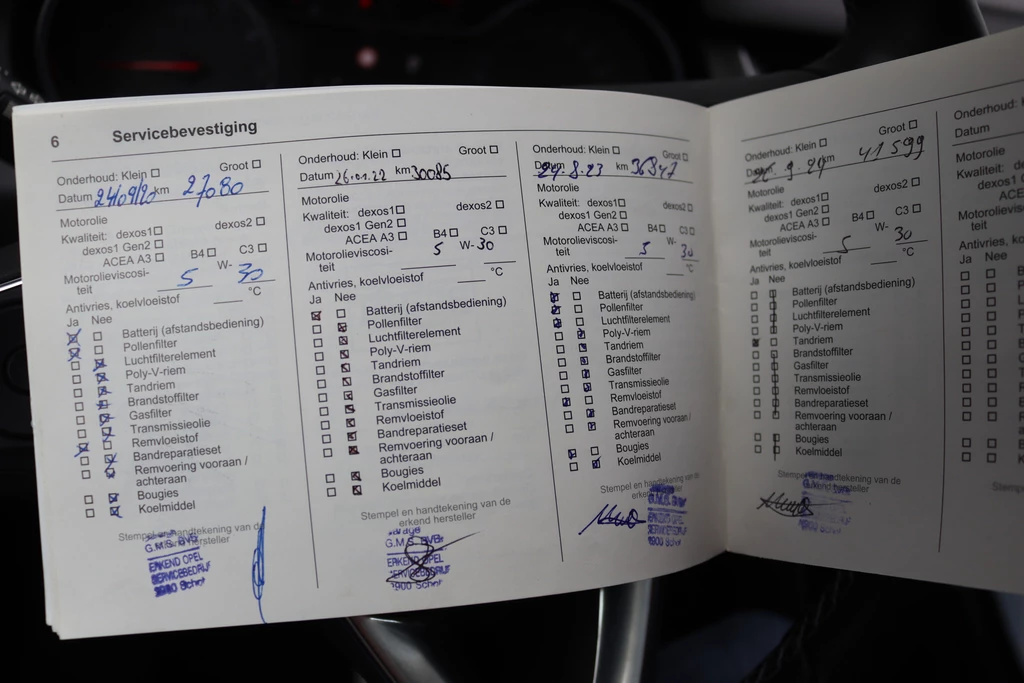 6 Servicebevestiging
Onderhoud: Klein ☐ Groot ☐
Datum 24/09/20 27080
Motorolie
Kwaliteit: dexos1 ☐ dexos2 ☐
dexos1 Gen2 ☐
ACEA A3 ☐ B4 ☐ C3 ☐
Motorolieviscosi-
teit 5 W- 30
Antivries, koelvloeistof ___ °C
Ja Nee
Batterij (afstandsbediening)
Pollenfilter
Luchtfilterelement
Poly-V-riem
Tandriem
Brandstoffilter
Gasfilter
Transmissieolie
Remvloeistof
Bandreparatieset
Remvoering vooraan /
achteraan
Bougies
Koelmiddel
Stempel en handtekening van de
erkend hersteller
G.M.S. BVBA
ERKEND OPEL
SERVICEBEDRIJF
Onderhoud: Klein ☐ Groot ☐
Datum 26.01.22 km 30085
Motorolie
Kwaliteit: dexos1 ☐ dexos2 ☐
dexos1 Gen2 ☐
ACEA A3 ☐ B4 ☐ C3 ☐
Motorolieviscosi-
teit 5 W- 30
Antivries, koelvloeistof ___ °C
Ja Nee
Batterij (afstandsbediening)
Pollenfilter
Luchtfilterelement
Poly-V-riem
Tandriem
Brandstoffilter
Gasfilter
Transmissieolie
Remvloeistof
Bandreparatieset
Remvoering vooraan /
achteraan
Bougies
Koelmiddel
Stempel en handtekening van de
erkend hersteller
G.M.S. BVBA
ERKEND OPEL
SERVICEBEDRIJF
Onderhoud: Klein ☐ Groot ☐
Datum 24.8.23 km 36947
Motorolie
Kwaliteit: dexos1 ☐ dexos2 ☐
dexos1 Gen2 ☐
ACEA A3 ☐ B4 ☐ C3 ☐
Motorolieviscosi-
teit 5 W- 30
Antivries, koelvloeistof ___ °C
Ja Nee
Batterij (afstandsbediening)
Pollenfilter
Luchtfilterelement
Poly-V-riem
Tandriem
Brandstoffilter
Gasfilter
Transmissieolie
Remvloeistof
Bandreparatieset
Remvoering vooraan /
achteraan
Bougies
Koelmiddel
Stempel en handtekening van de
erkend hersteller
ERKEND OPEL
SERVICEBEDRIJF
Onderhoud: Klein ☐ Groot ☐
9.24 km 41599
Motorolie
Kwaliteit: dexos1 ☐ dexos2 ☐
dexos1 Gen2 ☐
ACEA A3 ☐ B4 ☐ C3 ☐
Motorolieviscosi-
teit 5 W- 30
Antivries, koelvloeistof ___ °C
Ja Nee
Batterij (afstandsbediening)
Pollenfilter
Luchtfilterelement
Poly-V-riem
Tandriem
Brandstoffilter
Gasfilter
Transmissieolie
Remvloeistof
Bandreparatieset
Remvoering vooraan /
achteraan
Bougies
Koelmiddel
Stempel en handtekening van de
erkend hersteller
Onderhoud:
Datum
Motorolie
Kwaliteit:
dexos1
Motorolieviscosi-
teit
Antivries,
Ja Nee